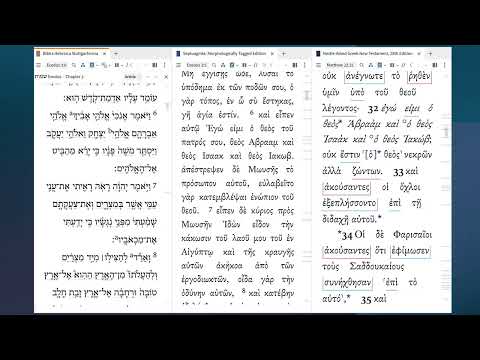 Biblia Hebraica Stuttgartensia
Exodus 3:6
Exodus - Chapter 3
Article
עוֹמֵד עָלָיו אַדְמַת־קֹדֶשׁ הוּא׃
6 וַיֹּאמֶר אָנֹכִי אֱלֹהֵי אָבִיךָ אֱלֹהֵי
אַבְרָהָם אֱלֹהֵי יִצְחָק וֵאלֹהֵי יַעֲקֹב
וַיַּסְתֵּר מֹשֶׁה פָּנָיו כִּי יָרֵא מֵהַבִּיט
אֶל־הָאֱלֹהִים׃
7 וַיֹּאמֶר יְהוָה רָאֹה רָאִיתִי אֶת־עֳנִי
עַמִּי אֲשֶׁר בְּמִצְרָיִם וְאֶת־צַעֲקָתָם
שָׁמַעְתִּי מִפְּנֵי נֹגְשָׂיו כִּי יָדַעְתִּי
אֶת־מַכְאֹבָיו׃
8 וָאֵרֵד לְהַצִּילוֹ מִיַּד מִצְרַיִם
וּלְהַעֲלֹתוֹ מִן־הָאָרֶץ הַהִוא אֶל־אֶרֶץ
טוֹבָה וּרְחָבָה אֶל־אֶרֶץ זָבַת חָלָב
Septuaginta: Morphologically Tagged Edition
Exodus 3:5
Μὴ ἐγγίσῃς ὧδε, λῦσαι τὸ
ὑπόδημα ἐκ τῶν ποδῶν σου, ὁ
γὰρ τόπος, ἐν ᾧ σὺ ἕστηκας,
γῆ ἁγία ἐστίν. 6 καὶ εἶπεν
αὐτῷ Ἐγώ εἰμι ὁ θεὸς τοῦ
πατρός σου, θεὸς Αβρααμ καὶ
θεὸς Ισαακ καὶ θεὸς Ιακωβ.
ἀπέστρεψεν δὲ Μωυσῆς τὸ
πρόσωπον αὐτοῦ, εὐλαβεῖτο
γὰρ κατεμβλέψαι ἐνώπιον τοῦ
θεοῦ. 7 εἶπεν δὲ κύριος πρὸς
Μωυσῆν Ἰδὼν εἶδον τὴν
κάκωσιν τοῦ λαοῦ μου τοῦ ἐν
Αἰγύπτῳ καὶ τῆς κραυγῆς
αὐτῶν ἀκήκοα ἀπὸ τῶν
ἐργοδιωκτῶν, οἶδα γὰρ τὴν
ὀδύνην αὐτῶν, 8 καὶ κατέβην
Nestle-Aland Greek New Testament, 28th Edition
Matthew 22:32
οὐκ ἀνέγνωτε τὸ ῥηθὲν
ὑμῖν ὑπὸ τοῦ θεοῦ
λέγοντος· 32 ἐγώ εἰμι ὁ
θεὸς Ἀβραὰμ καὶ ὁ θεὸς
Ἰσαὰκ καὶ ὁ θεὸς Ἰακώβ;
οὐκ ἔστιν [ὁ] θεὸς νεκρῶν
ἀλλὰ ζώντων. 33 καὶ
ἀκούσαντες οἱ ὄχλοι
ἐξεπλήσσοντο ἐπὶ τῇ
διδαχῇ αὐτοῦ.
34 Οἱ δὲ Φαρισαῖοι
ἀκούσαντες ὅτι ἐφίμωσεν
τοὺς Σαδδουκαίους
συνήχθησαν ἐπὶ τὸ
αὐτό, 35 καὶ